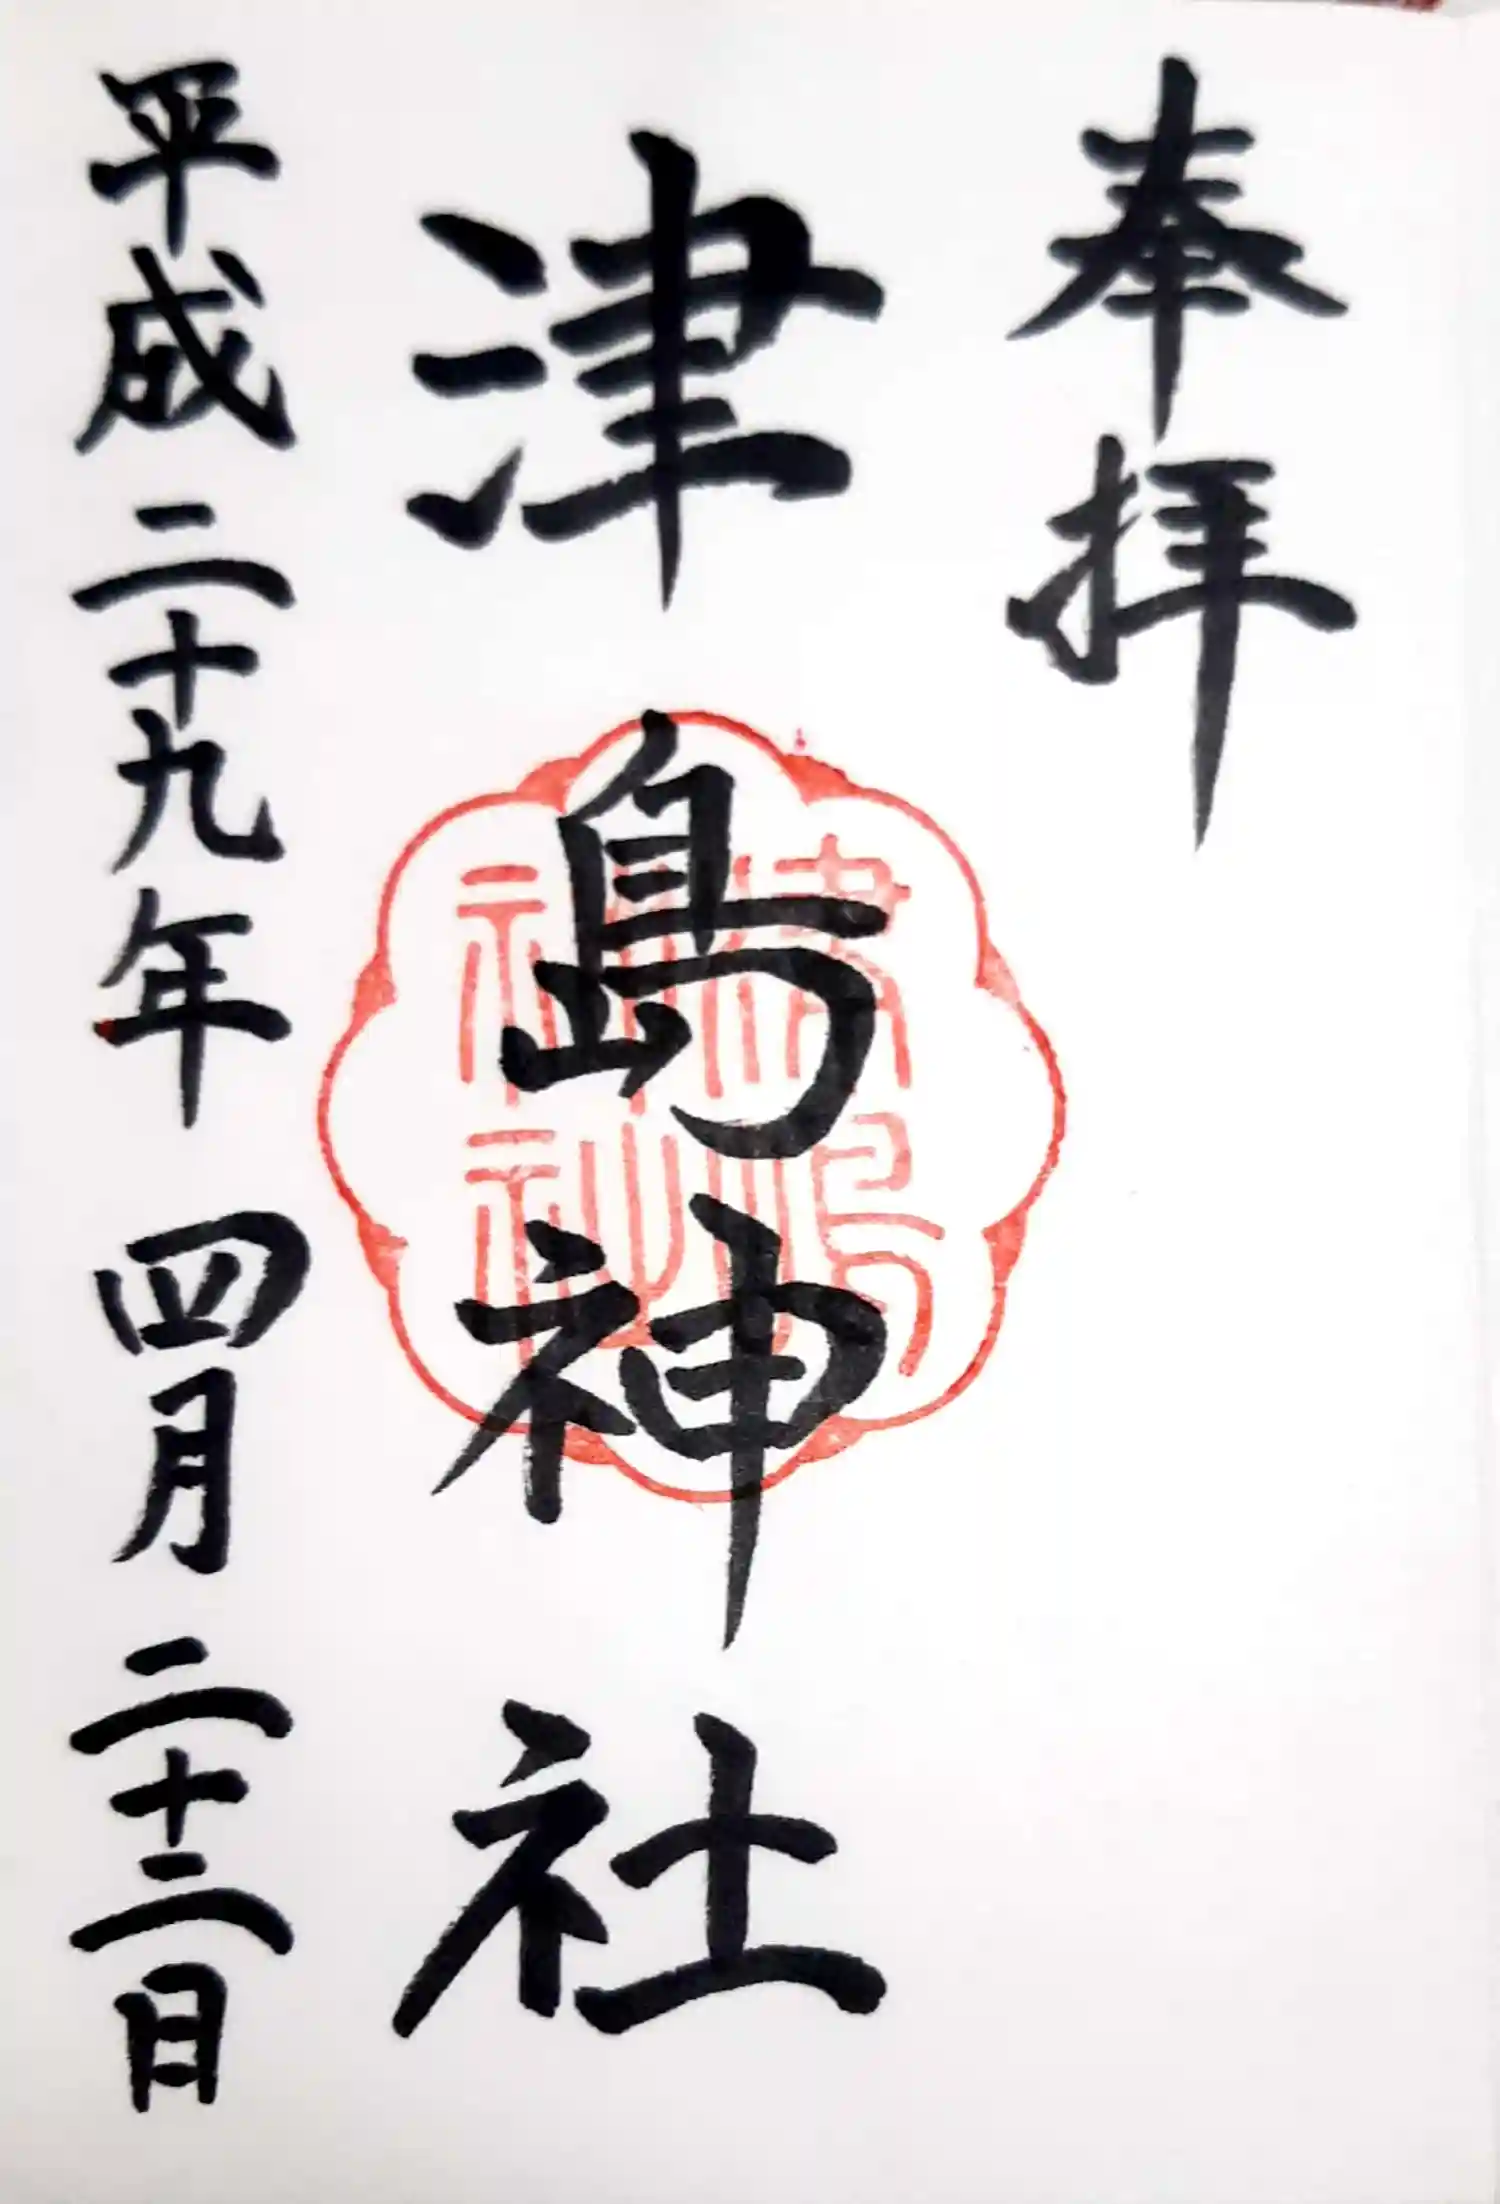 奉拝
津島神社
平成二十九年四月二十二日
津島神社